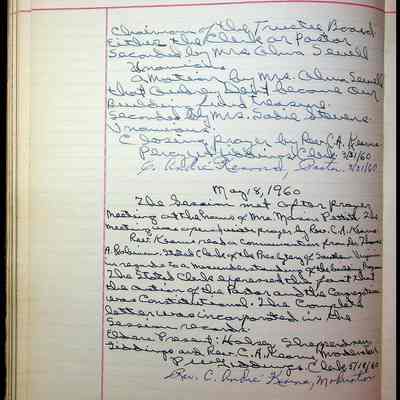 Chairman of the Trustee Board.
Either the Clerk or Pastor
Seconded by Mrs Calvin Sewell
Unanimous
a Motion by Mrs. Calvin Sewell
that Aubrey Dept become our
Building Fund Treasure.
Seconded by Mrs. Sadie Stevens
Unanimous.
Closing Prayer by Rev. C.A. Kearns
Percy Giddings, Clerk 3/21/60
C. André Kearns, Pastor 3/21/60
May 18, 1960
The Session met after prayer
Meeting at the home of Mrs. Marion Pettis. The
meeting was opened with prayer by Rev. C.A. Kearns
Rev. Kearns read a communication from Dr.
A. Robinson Stated Clerk of the Presbytery of Southern Virginia
in regards to a misunderstanding of the building Program
The Stated Clerk expressed the fact that
the action of the Pastor and the Congregation
was Constitutional. The Complete
letter was incorporated in the
Session records.
Elders Present: Halsey, Shepperdson,
Giddings and Rev. C.A. Kearns Moderator
P. W. Giddings. Clerk 5/18/60
Rev. C. André Kearns, Moderator